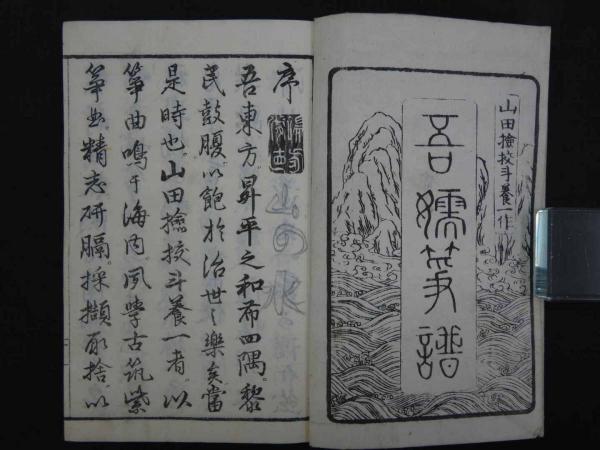 山田撿挍斗養一作
吾嬬箏譜
序
吾東方昇平之和布四隅。黎
民鼓腹。以飽於治世之樂矣。當
是時也。山田撿挍斗養一者。以
箏曲鳴于海内。夙學古筑紫
箏曲。精志研膈。採擷取捨。以